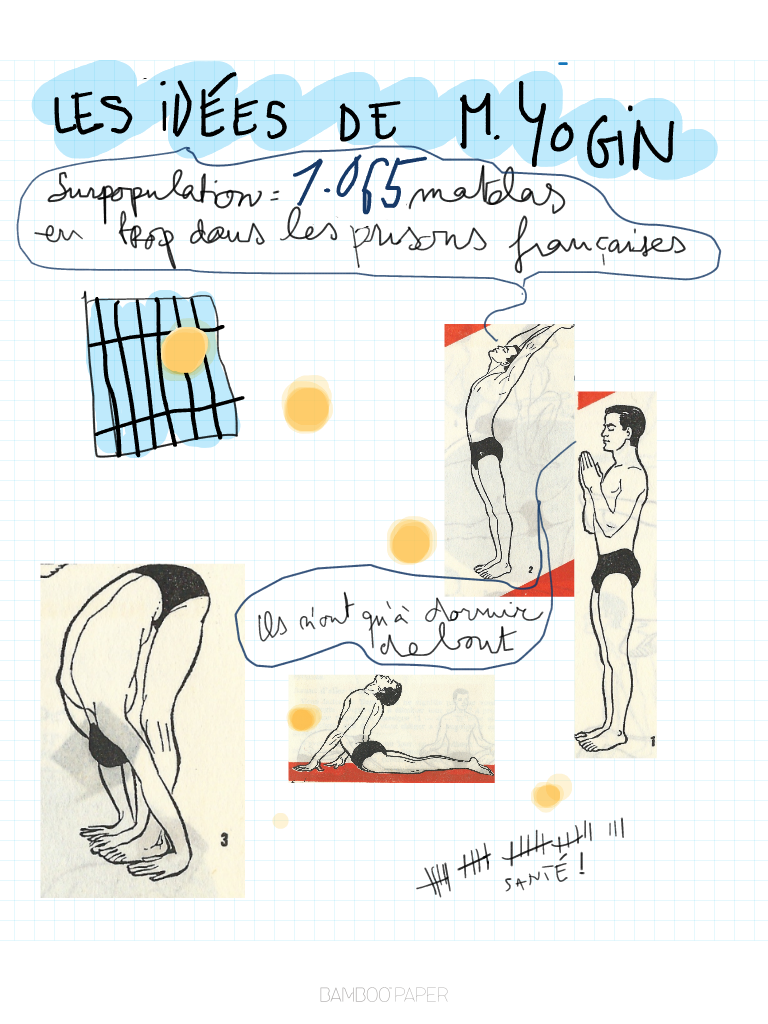 LES IDÉES DE M. YOGIN
Surpopulation = 1.065 matelas
en trop dans les prisons françaises
2
1
Ils n'ont qu'à dormir
debout
3
SANTÉ !
BAMBOO PAPER